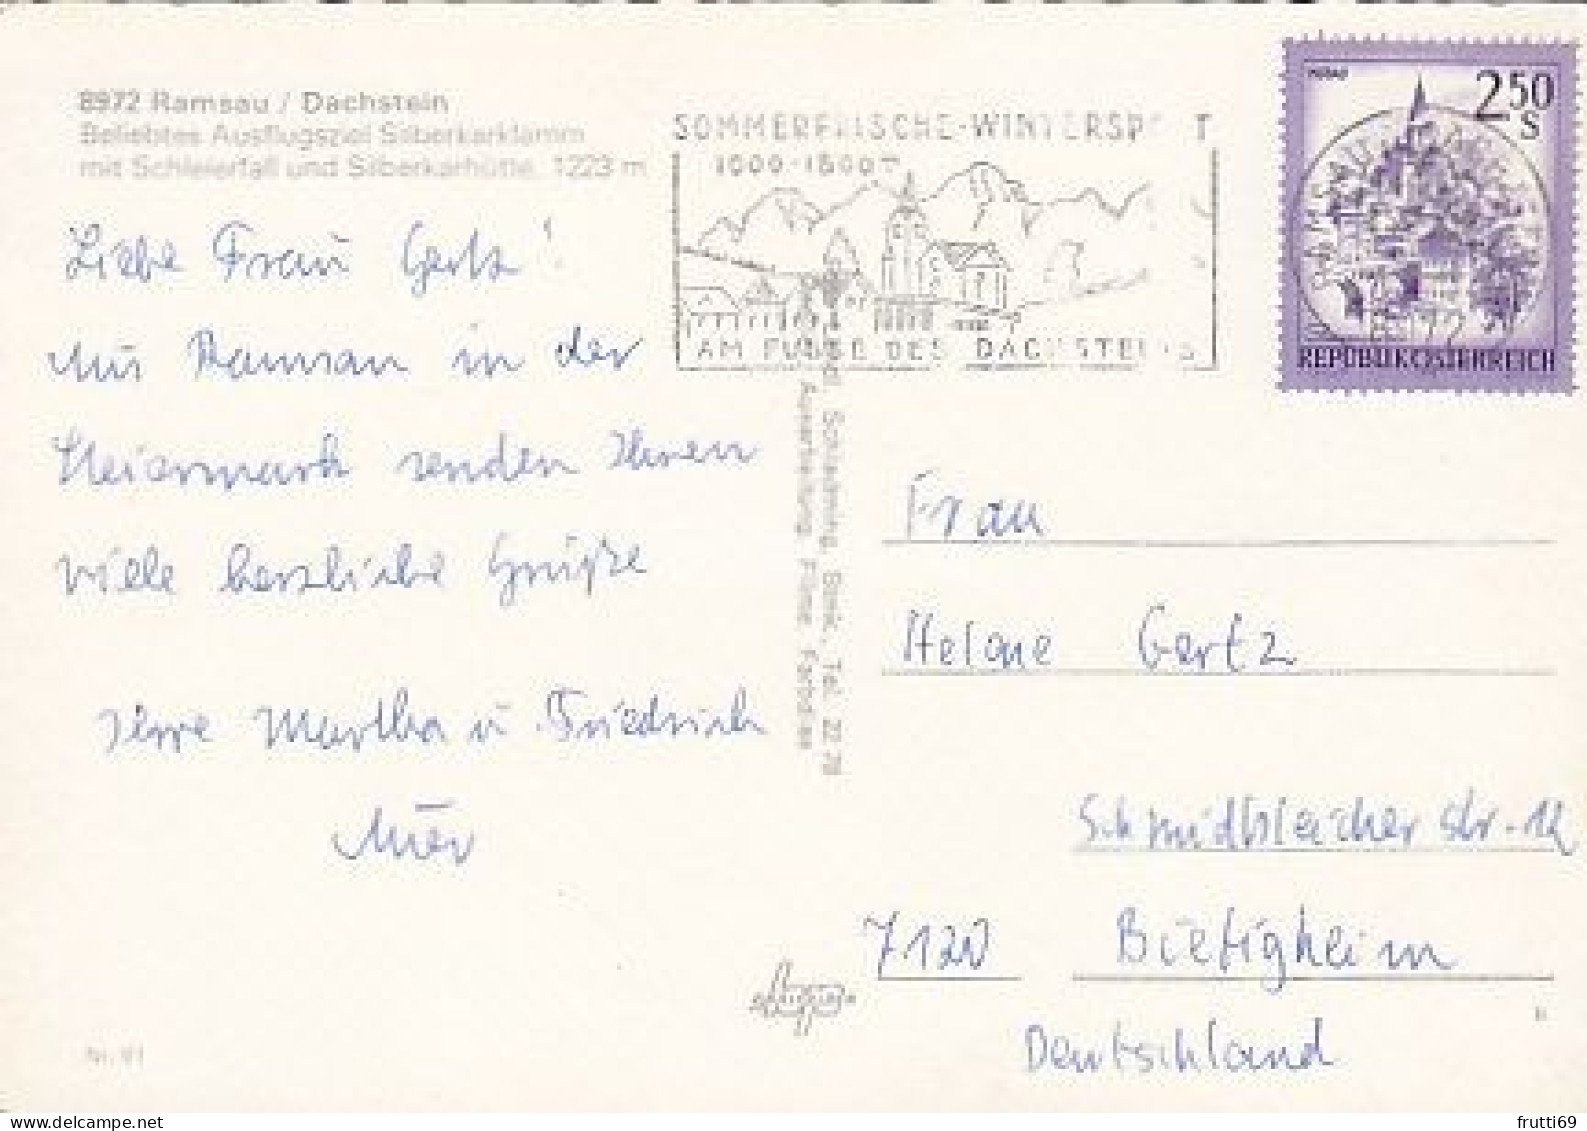 8972 Ramsau / Dachstein
Beliebtes Ausflugsziel Silberkarklamm
mit Schleierfall und Silberkarhütte, 1223 m
Liebe Frau Gertz!
Aus Ramsau in der
Steiermark senden Ihnen
viele herzliche Grüße
Ihre Martha u. Friedrich
SOMMERFRISCHE-WINTERSPORT
1000-1500
AM FUSSE DES DACHSTEINS
2.50
S
REPUBLIK ÖSTERREICH
Schladming, Tel. 22 78
Ausarbeitung, Filme, Farbdias
Frau
Helene Gertz
Schmidbleicher str. 12
7120 Bietigheim
Deutschland
Nr. 91
frutti69